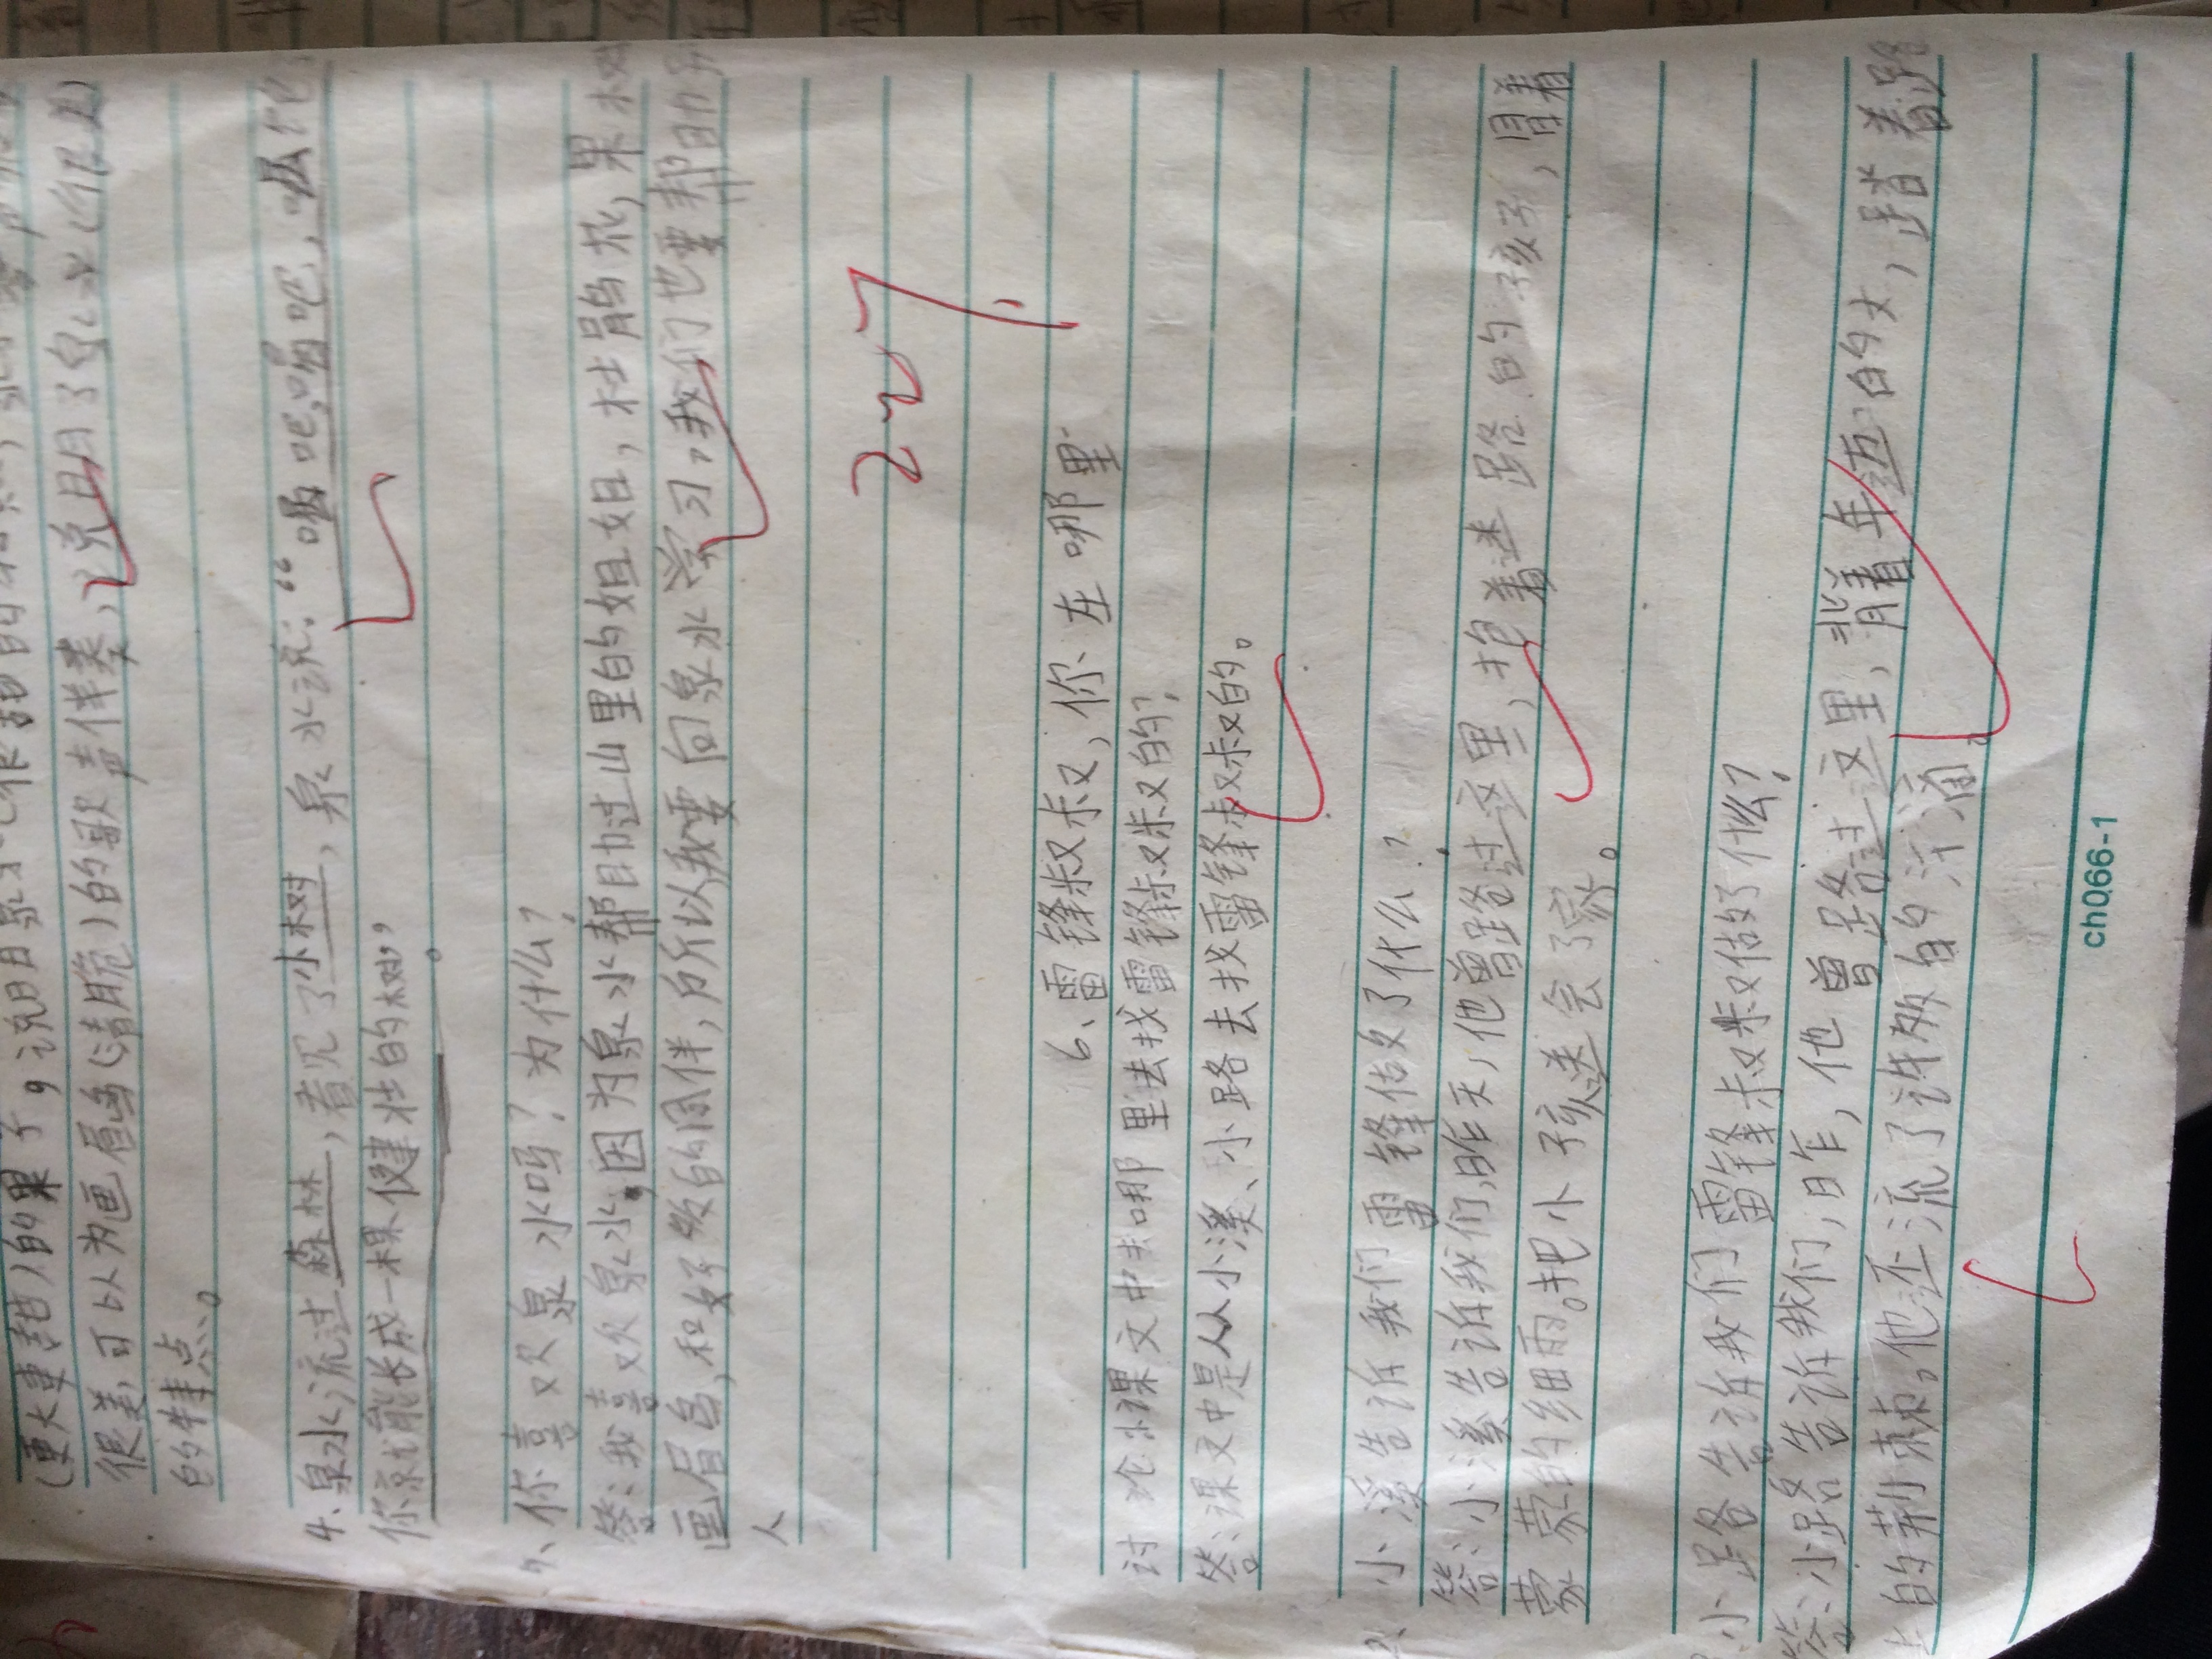 (更大更甜)的果子,说明
很美,可以为画眉鸟(清脆)的歌声伴奏,说明了泉水(很美)
的特点。
4.泉水流过森林,看见了小树,泉水说:“喝吧,喝吧,
你就能长成一棵健壮的树”。
5、你喜欢泉水吗?为什么?
答:我喜欢泉水,因为泉水帮助过山里的姐姐,杜鹃花,果树
画眉鸟,和好 的 伴,所以我要向泉水学习,我们也要帮助别
人
6、雷锋叔叔,你在哪里
讨论 课文中去哪里去找雷锋叔叔的?
答:课文中是从小溪、小路去找雷锋叔叔的。
小溪告诉我们雷锋做了什么?
答:小溪告诉我们,昨天,他曾路过这里,抱着迷路的孩子,冒着
蒙蒙的细雨。把小孩送会了家。
小路告诉我们雷锋叔叔做了什么?
答:小路告诉我们,昨,他曾路过这里,背着年迈的大,踏着路
上的荆棘。他还流了许多的汗滴。
ch066-1